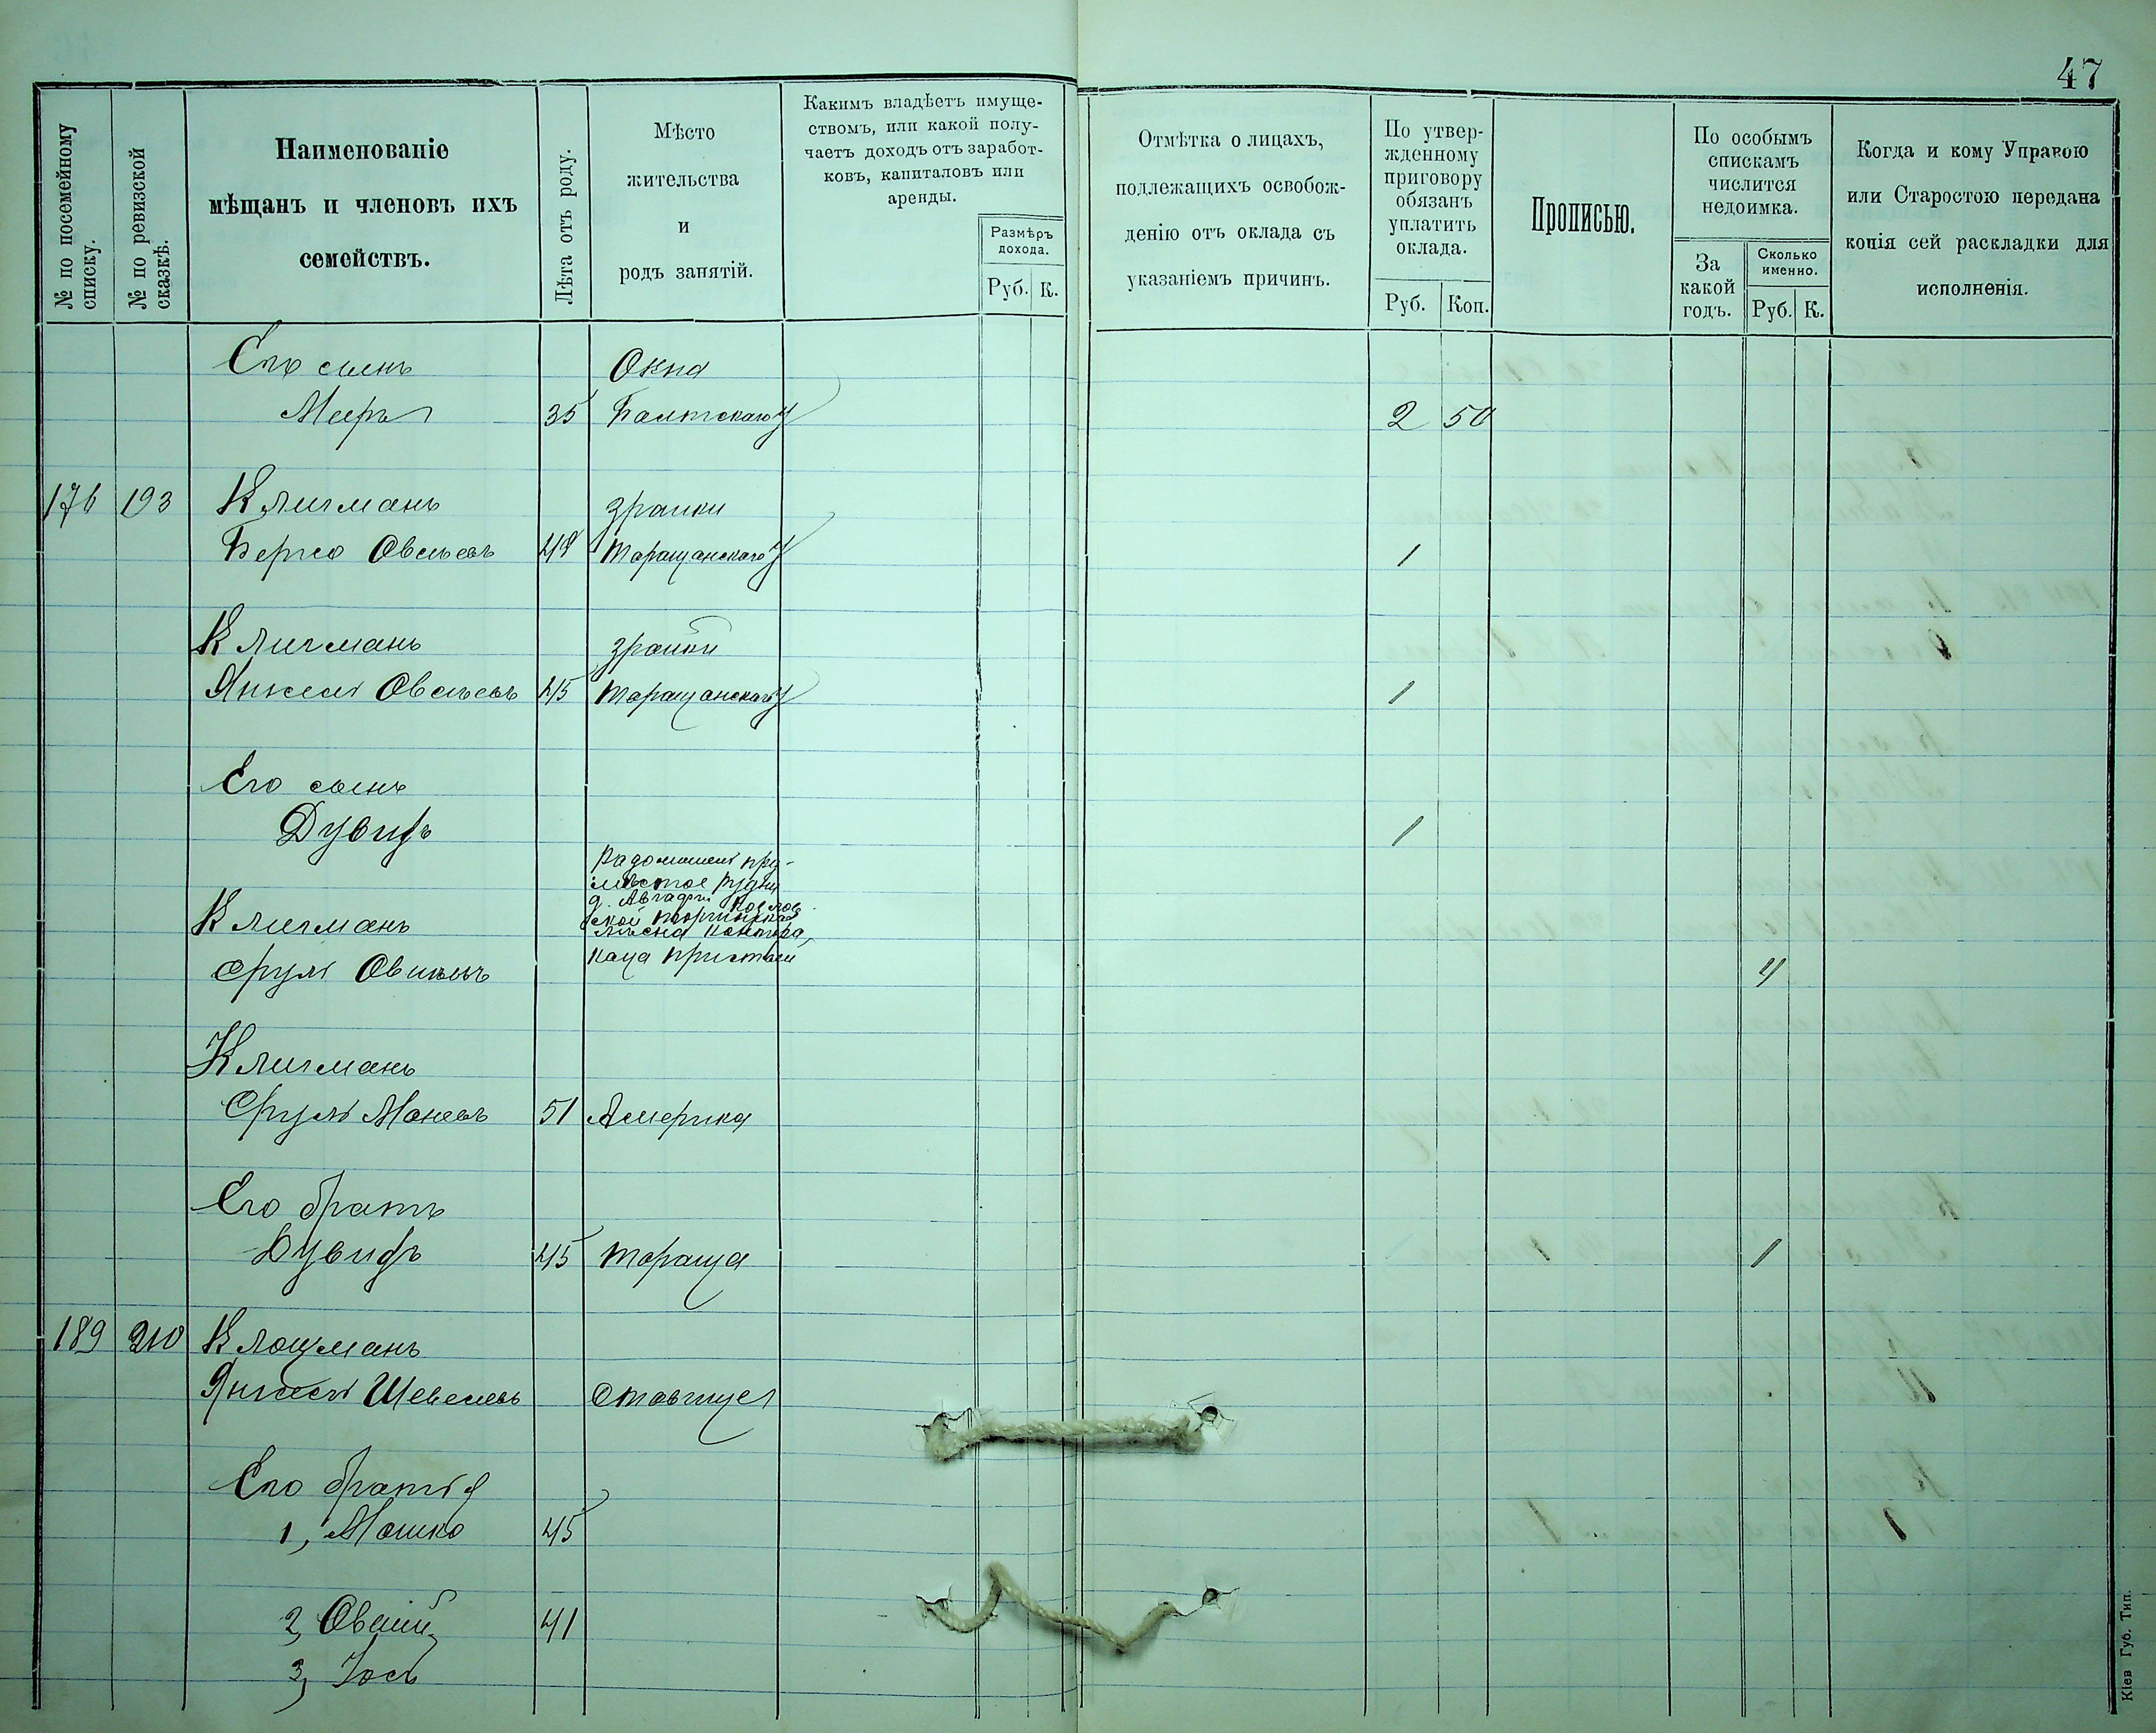 47
№ по посемейному
списку.
№ по ревизской
сказкѣ.
Наименованіе
мѣщанъ и членовъ ихъ
семействъ.
Лѣта отъ роду.
Мѣсто
жительства
и
родъ занятій.
Какимъ владѣетъ имуще-
ствомъ, или какой полу-
чаетъ доходъ отъ заработ-
ковъ, капиталовъ или
аренды.
Размѣръ
дохода.
Руб. К.
Отмѣтка о лицахъ,
подлежащихъ освобож-
денію отъ оклада съ
указаніемъ причинъ.
По утвер-
жденному
приговору
обязанъ
уплатить
оклада.
Руб. Коп.
Прописью.
По особымъ
спискамъ
числится
недоимка.
За
какой
годъ.
Сколько
именно.
Руб. К.
Когда и кому Управою
или Старостою передана
копія сей раскладки для
исполненія.
Его сынъ Окна
Мееръ 35 Балтскаго у 2 50
176 193 Кличманъ
Берко Овсѣевъ Таращанскаго у 1
Кличманъ
Янкель Овсѣевъ 45 Таращанскаго у 1
Его сынъ
Дувидъ 1
Кличманъ
Сруль 4
Кличманъ
Сруль 51 Америка
Его братъ
Дувидъ 45 Тараща 1
189 210 Клоцманъ
Янкель Шевелевъ Ставище
Его братія
1, Мошко 45
2, Овшій 41
3, Іось
Кіев Губ. Тип.